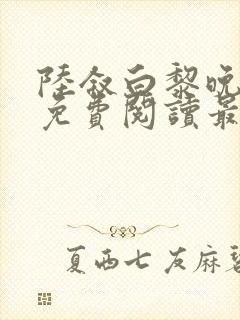 陸敘白黎晚
免費閱讀最
夏西七友麻